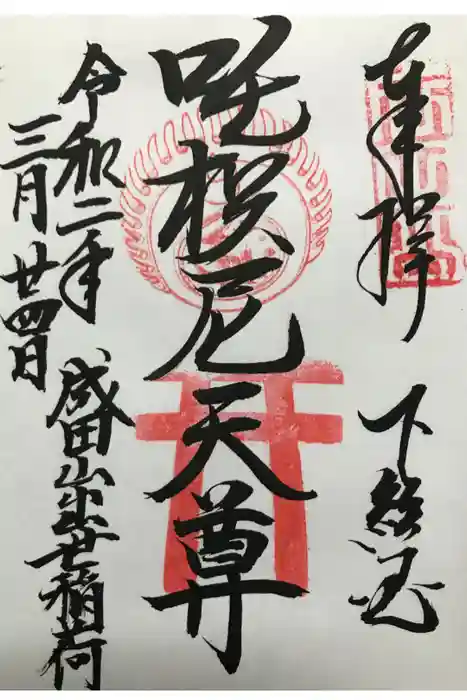 奉拝 下総国
吒枳尼天尊
令和二年
三月廿四日
成田山出世稲荷